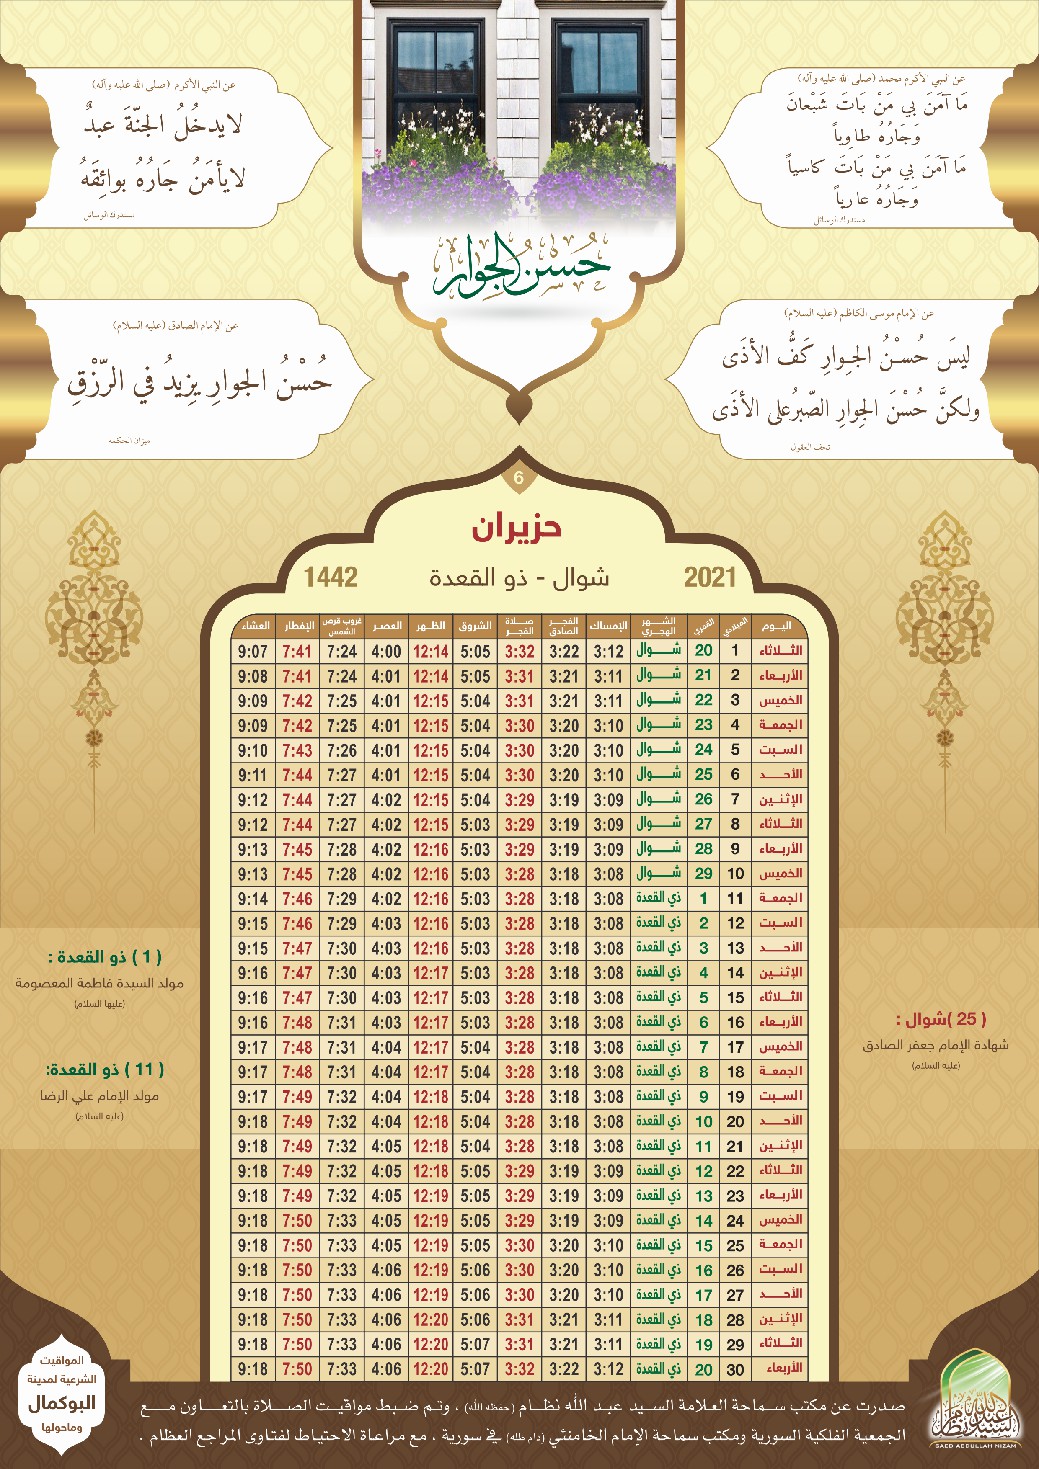 عن النبي الأكرم محمد (صلى الله عليه وآله)
مَا آمَنَ بي مَنْ بَاتَ شَبْعانَ
وَجَارُهُ طاوِياً
مَا آمَنَ بي مَنْ بَاتَ كاسياً
وَجَارُهُ عارياً
مستدرك الوسائل
عن النبي الأكرم (صلى الله عليه وآله)
لايدخُلُ الجنّةَ عبدٌ
لايأمَنُ جَارُهُ بوائِقَهُ
مستدرك الوسائل
حُسنُ الجِوار
عن الإمام موسى الكاظم (عليه السلام)
ليسَ حُسْنُ الجِوارِ كَفُّ الأذَى
ولكنَّ حُسْنَ الجِوارِ الصّبرُعلى الأذَى
تحف العقول
عن الإمام الصادق (عليه السلام)
حُسْنُ الجوارِ يزيدُ في الرّزْقِ
ميزان الحكمة
6
حزيران
2021 شوال - ذو القعدة 1442
اليوم الميلادي القمري الشهر الهجري الإمساك الفجر الصادق صلاة الفجر الشروق الظهر العصر غروب قرص الشمس الإفطار العشاء
الثلاثاء 1 20 شوال 3:12 3:22 3:32 5:05 12:14 4:00 7:24 7:41 9:07
الأربعاء 2 21 شوال 3:11 3:21 3:31 5:05 12:14 4:01 7:24 7:41 9:08
الخميس 3 22 شوال 3:11 3:21 3:31 5:04 12:15 4:01 7:25 7:42 9:09
الجمعة 4 23 شوال 3:10 3:20 3:30 5:04 12:15 4:01 7:25 7:42 9:09
السبت 5 24 شوال 3:10 3:20 3:30 5:04 12:15 4:01 7:26 7:43 9:10
الأحد 6 25 شوال 3:10 3:20 3:30 5:04 12:15 4:01 7:27 7:44 9:11
الإثنين 7 26 شوال 3:09 3:19 3:29 5:04 12:15 4:02 7:27 7:44 9:12
الثلاثاء 8 27 شوال 3:09 3:19 3:29 5:03 12:15 4:02 7:27 7:44 9:12
الأربعاء 9 28 شوال 3:09 3:19 3:29 5:03 12:16 4:02 7:28 7:45 9:13
الخميس 10 29 شوال 3:08 3:18 3:28 5:03 12:16 4:02 7:28 7:45 9:13
الجمعة 11 1 ذي القعدة 3:08 3:18 3:28 5:03 12:16 4:02 7:29 7:46 9:14
السبت 12 2 ذي القعدة 3:08 3:18 3:28 5:03 12:16 4:03 7:29 7:46 9:15
الأحد 13 3 ذي القعدة 3:08 3:18 3:28 5:03 12:16 4:03 7:30 7:47 9:15
الإثنين 14 4 ذي القعدة 3:08 3:18 3:28 5:03 12:17 4:03 7:30 7:47 9:16
الثلاثاء 15 5 ذي القعدة 3:08 3:18 3:28 5:03 12:17 4:03 7:30 7:47 9:16
الأربعاء 16 6 ذي القعدة 3:08 3:18 3:28 5:03 12:17 4:03 7:31 7:48 9:16
الخميس 17 7 ذي القعدة 3:08 3:18 3:28 5:04 12:17 4:04 7:31 7:48 9:17
الجمعة 18 8 ذي القعدة 3:08 3:18 3:28 5:04 12:17 4:04 7:31 7:48 9:17
السبت 19 9 ذي القعدة 3:08 3:18 3:28 5:04 12:18 4:04 7:32 7:49 9:17
الأحد 20 10 ذي القعدة 3:08 3:18 3:28 5:04 12:18 4:04 7:32 7:49 9:18
الإثنين 21 11 ذي القعدة 3:08 3:18 3:28 5:04 12:18 4:05 7:32 7:49 9:18
الثلاثاء 22 12 ذي القعدة 3:09 3:19 3:29 5:05 12:18 4:05 7:32 7:49 9:18
الأربعاء 23 13 ذي القعدة 3:09 3:19 3:29 5:05 12:19 4:05 7:32 7:49 9:18
الخميس 24 14 ذي القعدة 3:09 3:19 3:29 5:05 12:19 4:05 7:33 7:50 9:18
الجمعة 25 15 ذي القعدة 3:10 3:20 3:30 5:05 12:19 4:05 7:33 7:50 9:18
السبت 26 16 ذي القعدة 3:10 3:20 3:30 5:06 12:19 4:06 7:33 7:50 9:18
الأحد 27 17 ذي القعدة 3:10 3:20 3:30 5:06 12:19 4:06 7:33 7:50 9:18
الإثنين 28 18 ذي القعدة 3:11 3:21 3:31 5:06 12:20 4:06 7:33 7:50 9:18
الثلاثاء 29 19 ذي القعدة 3:11 3:21 3:31 5:07 12:20 4:06 7:33 7:50 9:18
الأربعاء 30 20 ذي القعدة 3:12 3:22 3:32 5:07 12:20 4:06 7:33 7:50 9:18
( 25 )شوال :
شهادة الإمام جعفر الصادق
(عليه السلام)
( 1 ) ذو القعدة :
مولد السيدة فاطمة المعصومة
(عليها السلام)
( 11 ) ذو القعدة:
مولد الإمام علي الرضا
(عليه السلام)
صدرت عن مكتب سماحة العلامة السيد عبد الله نظام (حفظه الله) ، وتم ضبط مواقيت الصلاة بالتعاون مع
الجمعية الفلكية السورية ومكتب سماحة الإمام الخامنئي (دام ظله) في سورية ، مع مراعاة الاحتياط لفتاوى المراجع العظام .
المواقيت
الشرعية لمدينة
البوكمال
وماحولها
SAED ABDULLAH NIZAM